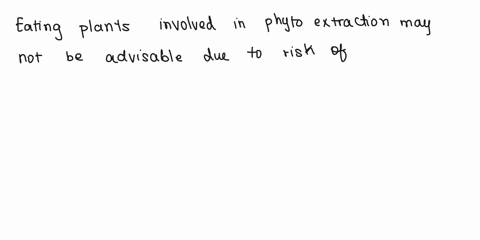 Eating plants involved in phyto extraction may
not be advisable due to risk of